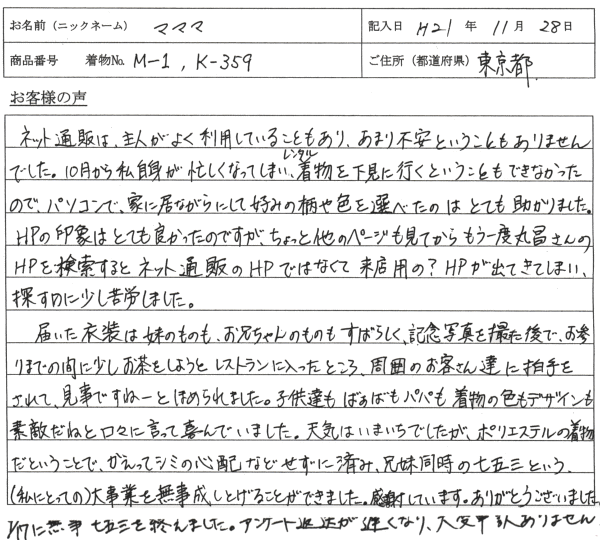 お名前(ニックネーム) マママ 記入日 H21 年 11 月 28 日
商品番号 着物No. M-1 , K-359 ご住所(都道府県) 東京都
お客様の声
ネット通販は、主人がよく利用していることもあり、あまり不安ということもありません
でした。10月から私自身が忙しくなってしまい、レンタル着物を下見に行くということもできなかった
ので、パソコンで、家に居ながらにして好みの柄や色を選べたのはとても助かりました。
HPの印象はとても良かったのですが、ちょっと他のページも見てからもう一度丸昌さんの
HPを検索するとネット通販のHPではなくて来店用の?HPが出てきてしまい、
探すのに少し苦労しました。
届いた衣装は妹のものも、お兄ちゃんのものもすばらしく、記念写真を撮た後で、お参
りまでの間に少しお茶をしようとレストランに入ったところ、周囲のお客さん達に拍手を
されて、見事ですねーとほめられました。子供達もばぁばもパパも着物の色もデザインも
素敵だねと口々に言って喜んでいました。天気はいまいちでしたが、ポリエステルの着物
だということで、かえってシミの心配などせずに済み、兄妹同時の七五三という、
(私にとっての)大事業を無事成しとげることができました。感謝しています。ありがとうございました
に無事七五三を終えました。アンケート返送が遅くなり、大変申し訳ありません